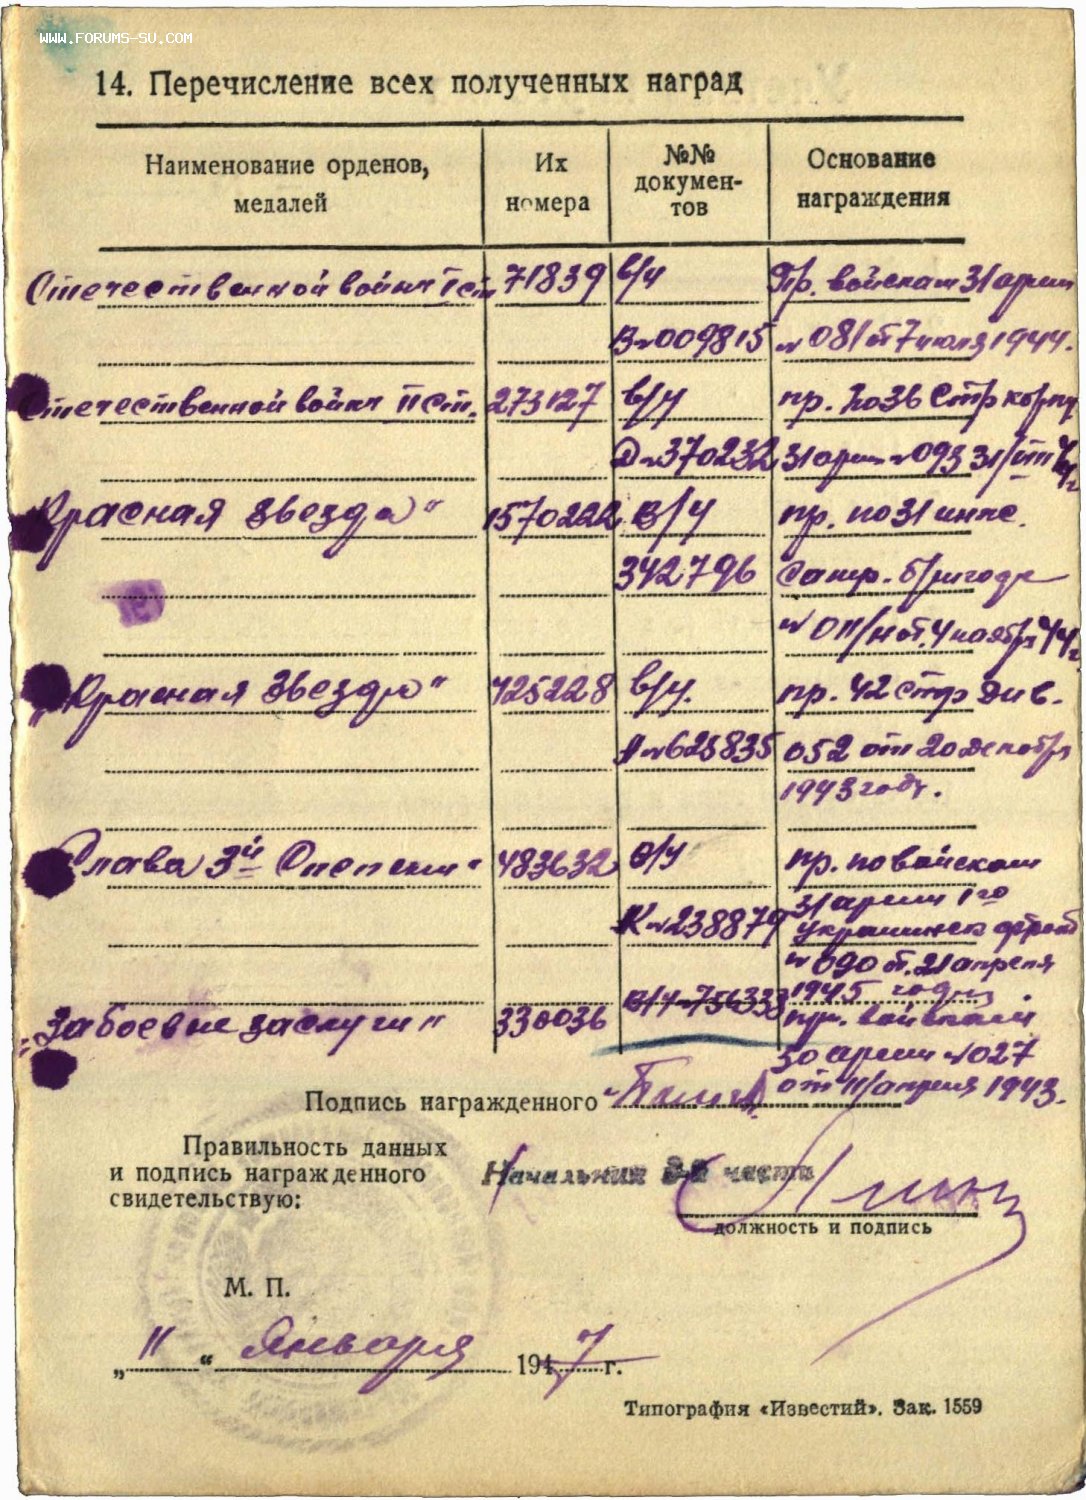 WWW.FORUMS-SU.COM
14. Перечисление всех полученных наград
Наименование орденов, медалей
Их номера
№№ докумен-тов
Основание награждения
Отечественной войны II ст 71839 в/ч Пр. войскам 31 армии
В № 009815 № 081 от 7 июля 1944.
Отечественной войны II ст. 273127 в/ч пр. по 36 Стр корпу
Д № 370232 31 армии № 093
Красная Звезда" 1570222 в/ч пр. по 31 инже.
342796 Сапер. бригаде
№ 011/н от 4 ноября 44 г
„Красная Звезда" 725228 в/ч. пр. 42 стр див.
№ 625835 052 от 20 декабря
1943 году.
Слава 3й Степени" 483632 в/ч пр. по войскам
31 армии 1го
К № 238879 украинск фронт
№ 090 от. 21 апреля
1945 года
„За боевые заслуги" 330036 В/ч 756333 пр. войскам
50 армии № 027
от 11/апреля 1943.
Подпись награжденного
Правильность данных
и подпись награжденного
свидетельствую:
Начальник 3-й части
должность и подпись
М. П.
„ 11 “ Января 1947 г.
Типография «Известий». Зак. 1559